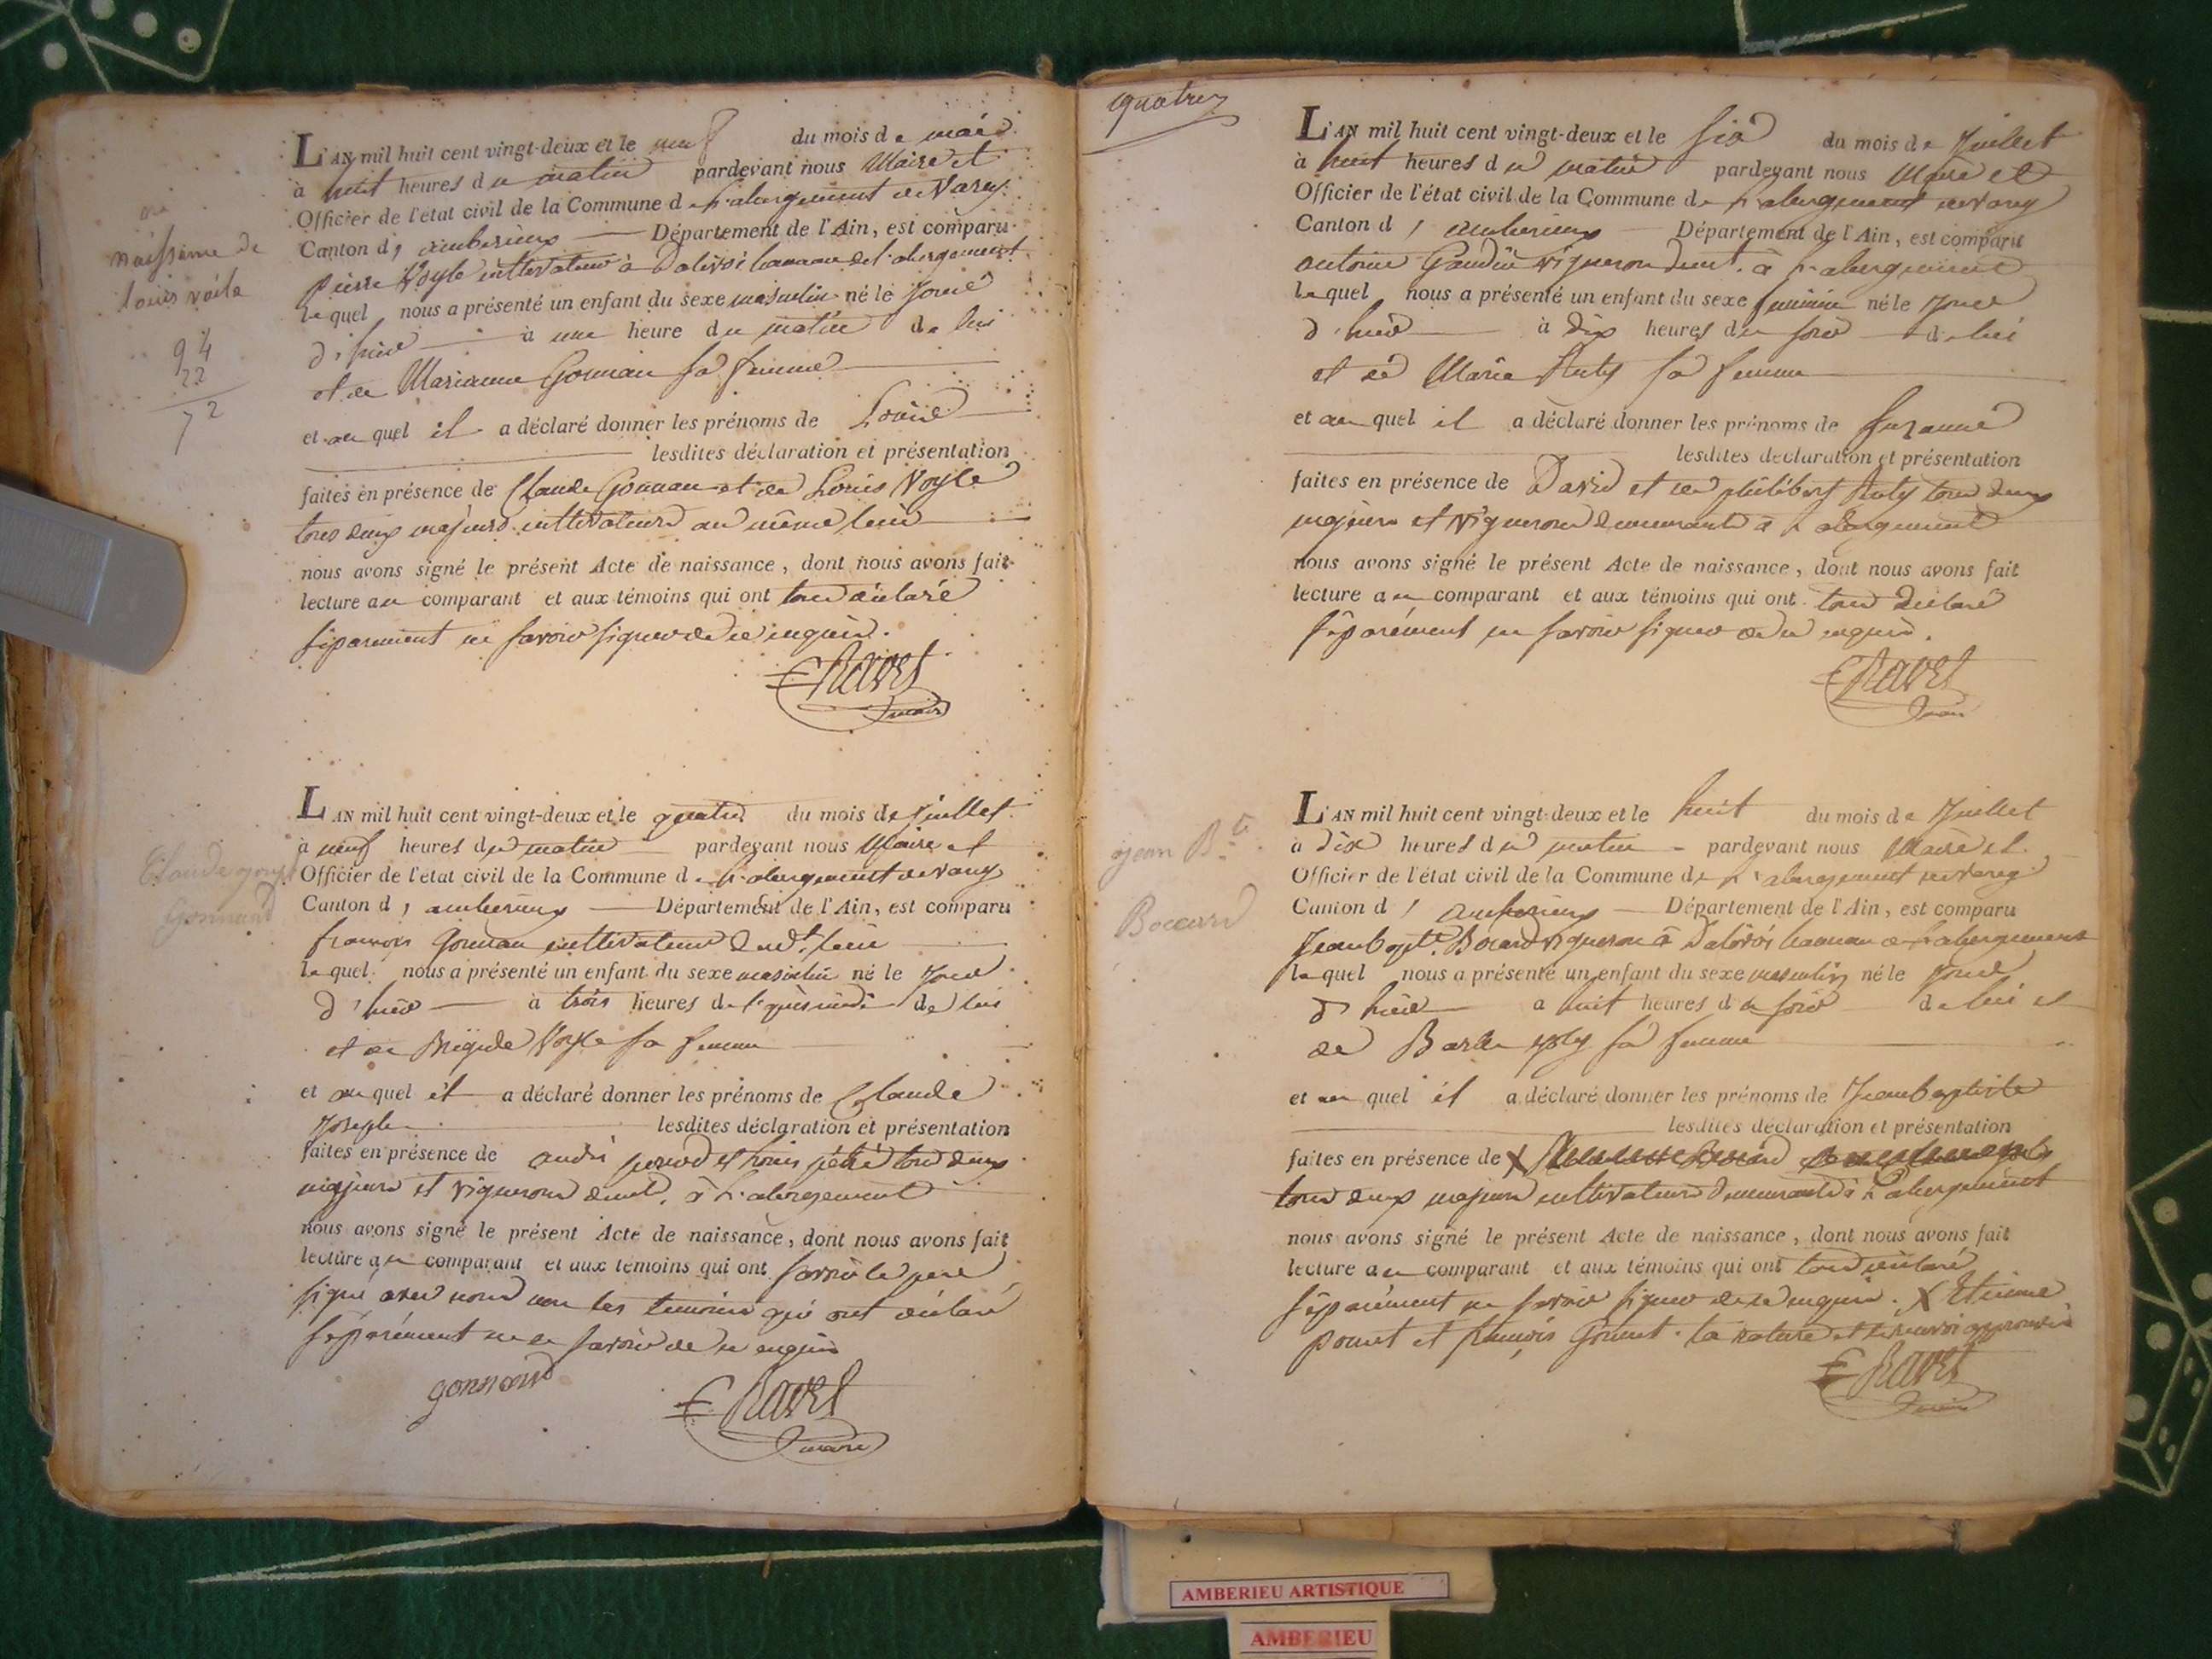 naissance de
louis voile
94
22
72
L'AN mil huit cent vingt-deux et le neuf du mois de mars
à huit heures du matin pardevant nous Maire et
Officier de l'état civil de la Commune de L'abergement de Varey
Canton d'amberieux Département de l'Ain, est comparu
pierre Voyle cultivateur à hameau de l'abergement
lequel nous a présenté un enfant du sexe masculin né le Jour
d'hier à une heure du matin de lui
et de Marianne Gonnan sa femme
et auquel il a déclaré donner les prénoms de Louis
lesdites déclaration et présentation
faites en présence de Claude Gonnan et de Louis Voyle
tous deux majeurs cultivateurs au même lieu
nous avons signé le présent Acte de naissance, dont nous avons fait
lecture au comparant et aux témoins qui ont tous déclaré
séparément ne savoir signer de ce enquis.
E Ravet
maire
Claude
Gonnand
L'AN mil huit cent vingt-deux et le quatre du mois de Juillet
à neuf heures du matin pardevant nous Maire et
Officier de l'état civil de la Commune de L'abergement de Varey
Canton d'amberieux Département de l'Ain, est comparu
francois Gonnan cultivateur lieu
lequel nous a présenté un enfant du sexe masculin né le Jour
d'hier à trois heures de l'après midi de lui
et de Brigide Voyle sa femme
et auquel il a déclaré donner les prénoms de Claude
Joseph lesdites déclaration et présentation
faites en présence de andré et Louis tous deux
majeurs et vignerons demt. à L'abergement
nous avons signé le présent Acte de naissance, dont nous avons fait
lecture au comparant et aux témoins qui ont savoir le père
signé avec nous non les temoins qui ont déclaré
séparément ne le savoir de ce enquis
gonnand
E Ravet
maire
quatre
L'AN mil huit cent vingt-deux et le six du mois de Juillet
à huit heures du matin pardevant nous Maire et
Officier de l'état civil de la Commune de L'abergement de Varey
Canton d'amberieux Département de l'Ain, est comparu
antoine Gaudin vigneron demt. à L'abergement
lequel nous a présenté un enfant du sexe feminin né le Jour
d'hier à dix heures du soir de lui
et de Marie sa femme
et auquel il a déclaré donner les prénoms de Suzanne
lesdites déclaration et présentation
faites en présence de David et de philibert tous deux
majeurs et vignerons demeurants à L'abergement
nous avons signé le présent Acte de naissance, dont nous avons fait
lecture au comparant et aux témoins qui ont tous déclaré
séparément ne savoir signer de ce enquis.
E Ravet
maire
jean Bte
Boccard
L'AN mil huit cent vingt-deux et le huit du mois de Juillet
à dix heures du matin pardevant nous Maire et
Officier de l'état civil de la Commune de L'abergement de Varey
Canton d'amberieux Département de l'Ain, est comparu
Jean bapte. Bocard vigneron à hameau de L'abergement
lequel nous a présenté un enfant du sexe masculin né le Jour
d'hier à huit heures du soir de lui et
de Barbe sa femme
et auquel il a déclaré donner les prénoms de Jean baptiste
lesdites déclaration et présentation
faites en présence de X
tous deux majeurs cultivateurs demeurants à L'abergement
nous avons signé le présent Acte de naissance, dont nous avons fait
lecture au comparant et aux témoins qui ont tous déclaré
séparément ne savoir signer de ce enquis. X Etienne
et françois la rature et le renvoi approuvés
E Ravet
maire
AMBERIEU ARTISTIQUE
AMBERIEU